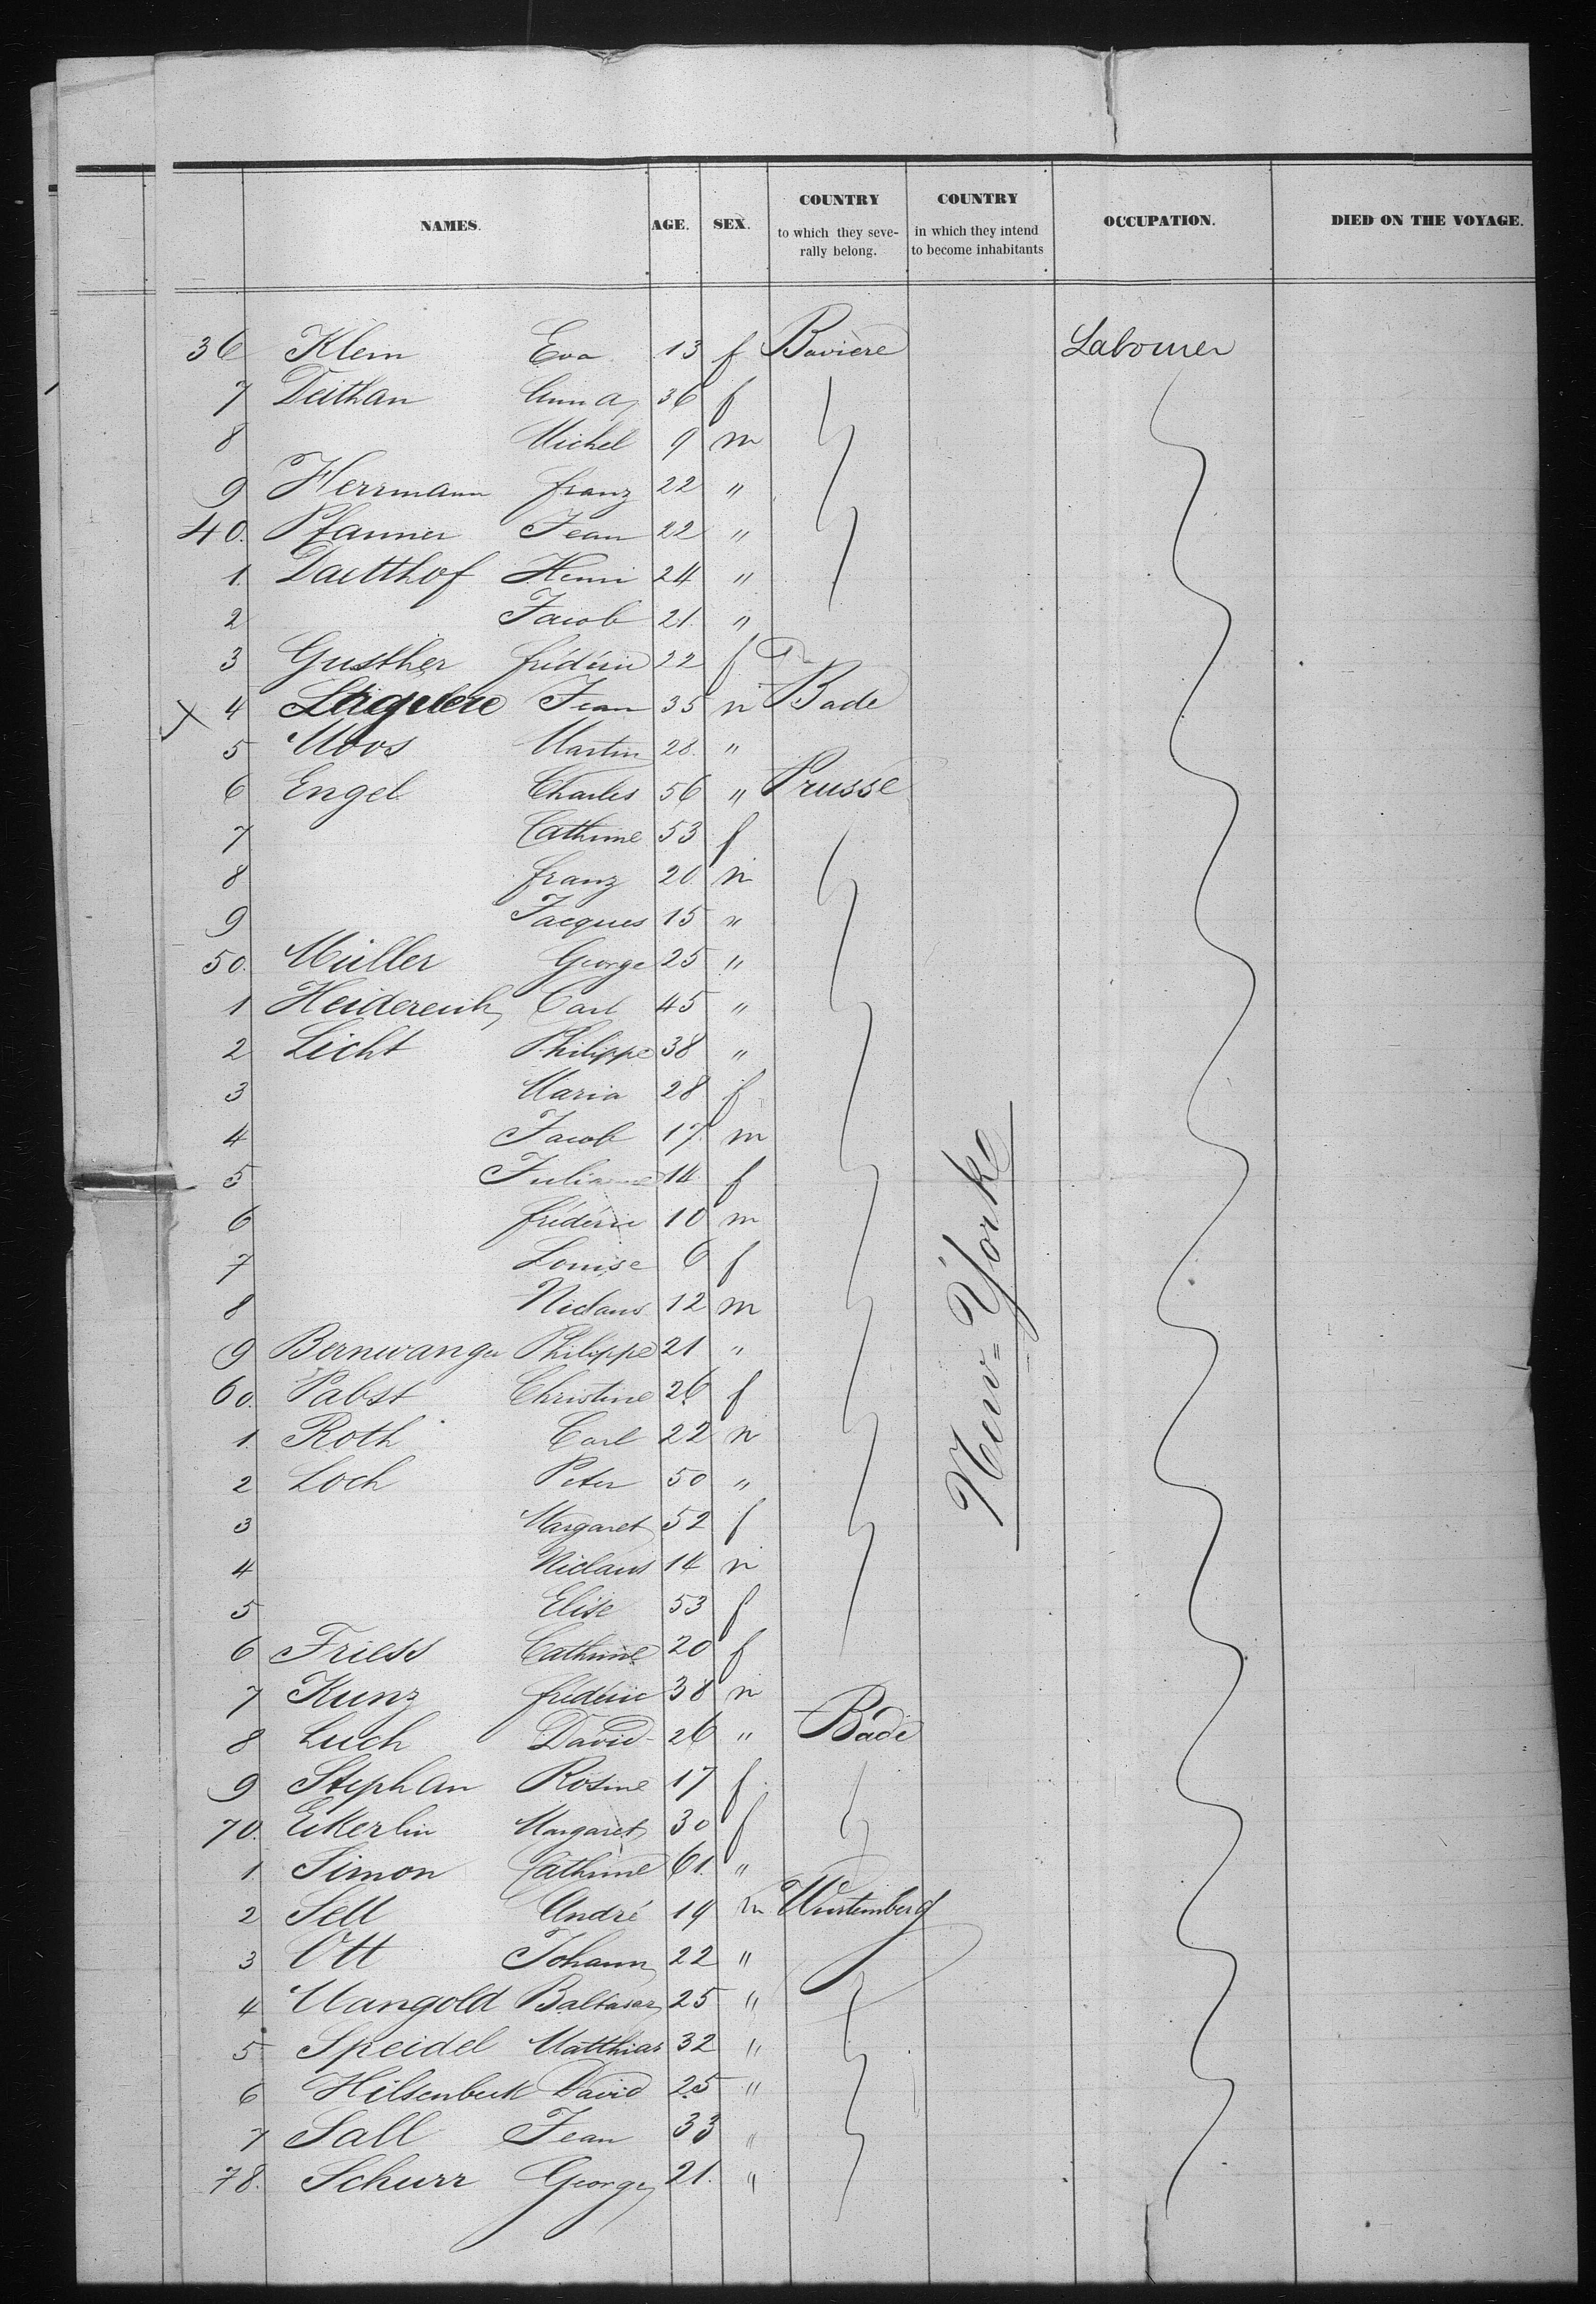 NAMES. AGE. SEX. COUNTRY to which they seve- rally belong. COUNTRY in which they intend to become inhabitants OCCUPATION. DIED ON THE VOYAGE.
36 Klein Eva 13 f Bavière Labourer
7 Deithan Anna 36 f
8 Michel 9 m
9 Herrmann franz 22 "
40. Pfanner Jean 22 "
1. Daetthof Henri 24 "
2 Jacob 21 "
3 Gusther frédéric 22 f
X 4 Jean 35 m Bade
5 Moos Martin 28. "
6 Engel Charles 56 " Prusse
7 Cathrine 53 f
8 franz 20 m
9 Jacques 15 "
50. Müller George 25 "
1 Heidereich Carl 45 "
2 Licht Philippe 38 "
3 Maria 28 f
4 Jacob 17 m
5 Juliane 14 f
6 frédéric 10 m
7 Louise 6 f
8 Niclaus 12 m
9 Bernwanger Philippe 21 "
60. Pabst Christine 26 f
1. Roth Carl 22 m
2 Loch Peter 50 "
3 Margaret 52 f
4 Niclaus 14 m
5 Elise 53 f
6 Friess Cathrine 20 f
7 Kunz frédéric 38 m
8 Luch David 26 " Bade
9 Stephan Rosine 17 f
70. Eckerlin Margaret 30 f
1. Simon Cathrine 61. "
2 Sell André 19 m Wurtemberg
3 Ott Johann 22 "
4 Mangold Baltasar 25 "
5 Speidel Matthias 32 "
6 Hilsenbeck David 25 "
7 Sall Jean 33 "
78. Schurr George 21. "
New-Yorke